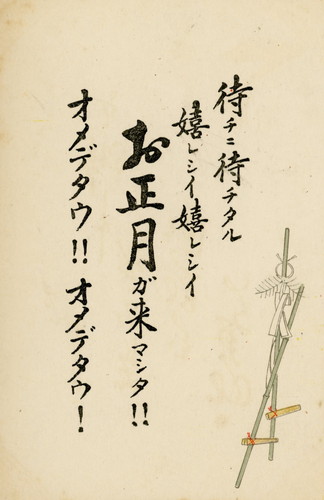 待チニ待チタル
嬉レシイ嬉レシイ
お正月ガ来マシタ!!
オメデタウ!! オメデタウ!